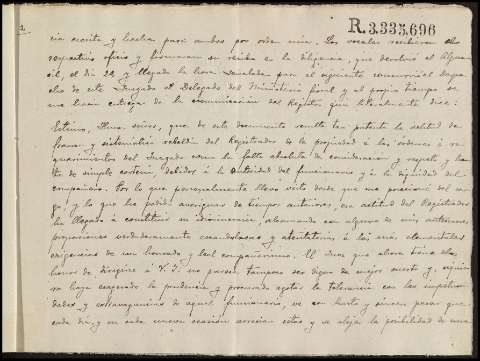 R.3.335,696
2
cia escrita y hecha pasó ambos por orden mía. Los vocales recibieron el
respectivo oficio y firmaron su recibo en la diligencia, que devolvió el Algua-
cil, el día 22 y llegada la hora señalada para el siguiente concurrió al despa-
cho de este Juzgado el Delegado del Ministerio fiscal y al propio tiempo se
me hacía entrega de la comunicación del Registro que literalmente dice:
Estimo, Ilmo. señor, que de este documento resulta tan patente la actitud de
franca y sistemática rebeldía del Registrador de la propiedad á las órdenes ó re-
querimientos del Juzgado como la falta absoluta de consideración y respeto y has-
ta de simple cortesía, debidos á la Autoridad del funcionario y á la dignidad del
compañero. Por lo que personalmente llevo visto desde que me posesioné del car-
go, y lo que he podido averiguar de tiempos anteriores, esa actitud del Registrador
ha llegado á constituir su idiosincrasia, alcanzando con algunos de mis antecesores
proporciones verdaderamente escandalosas y atentatorias á las más elementales
exigencias de un honrado y leal compañerismo. El Juez que ahora tiene el
honor de dirigirse á V. I. no parece tampoco ser digno de mejor suerte y, aquien
se haya exagerado la prudencia y procurado agotar la tolerancia con las impetuosi-
dades y extravagancias de aquel funcionario, ve con harto y sincero pesar que
cada día y en cada nueva ocasión arrecian estas y se aleja la posibilidad de una